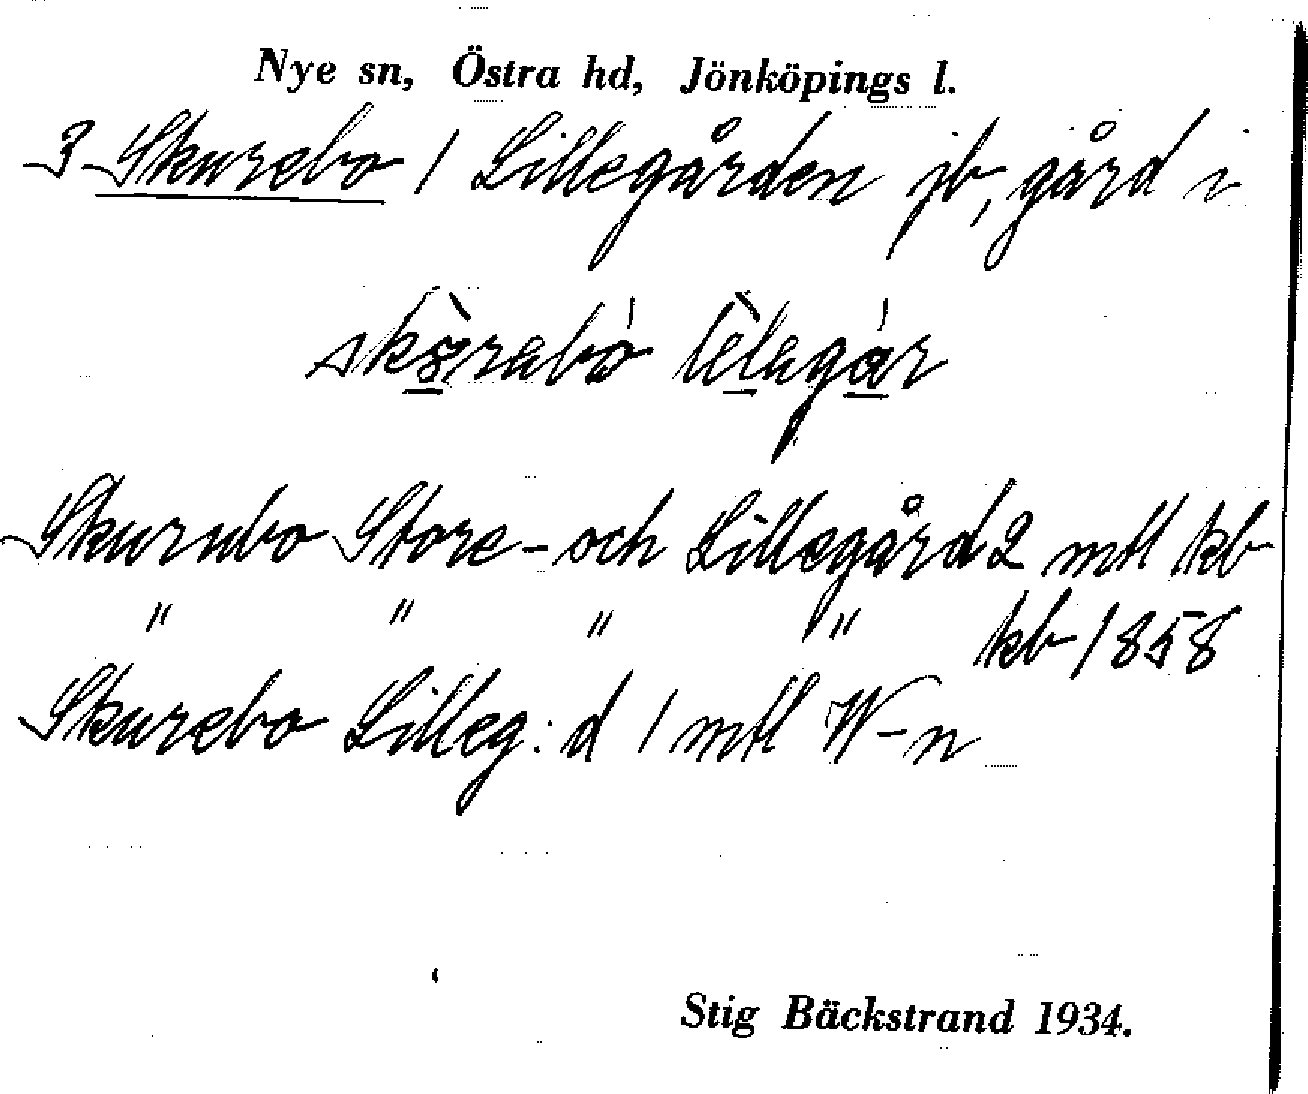 Nye sn, Östra hd, Jönköpings l.
3 Skurebo 1 Lillegården jb, gård i
Skurubo Store- och Lillegård 2 mtl kb
" " " " kb 1858
Skurebo Lilleg:d 1 mtl W-n
Stig Bäckstrand 1934.